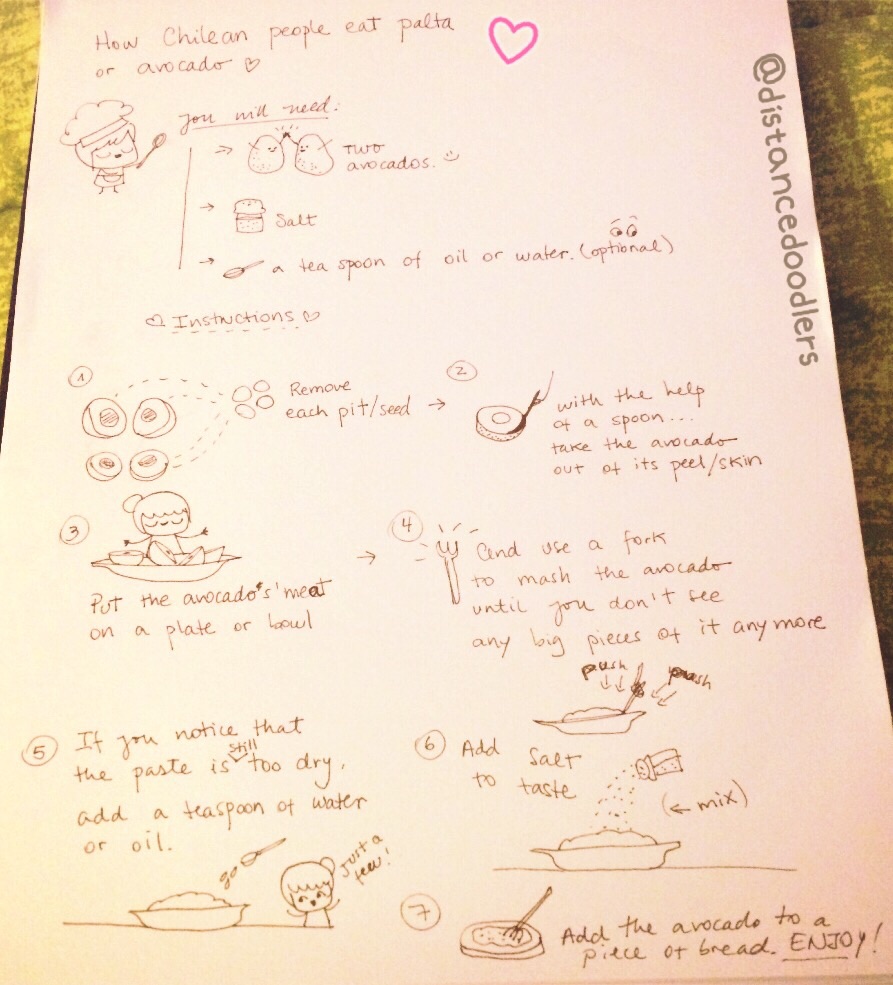 How Chilean people eat palta
or avocado
@distancedoodlers
You will need:
Two
avocados.
Salt
a tea spoon of oil or water. (optional)
Instructions
1
Remove
each pit/seed
2
with the help
of a spoon...
take the avocado
out of its peel/skin
3
Put the avocado's' meat
on a plate or bowl
4
And use a fork
to mash the avocado
until you don't see
any big pieces of it anymore
push
push
5
If you notice that
the paste is still too dry,
add a teaspoon of water
or oil.
Just a
few!
6
Add Salt
to taste
(← mix)
7
Add the avocado to a
piece of bread. ENJOY!